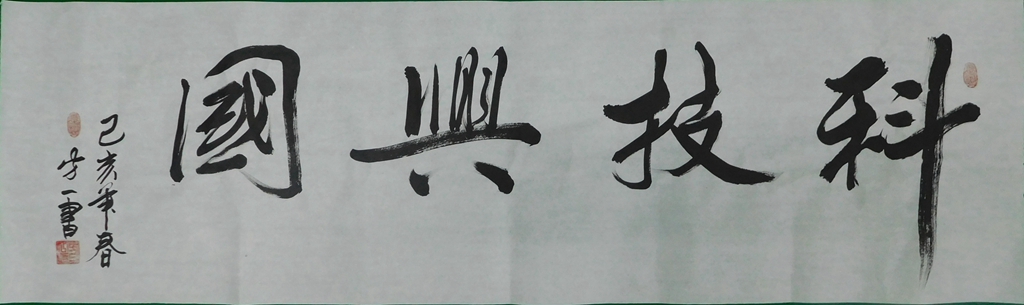 科技興國
己亥年春
方一雪